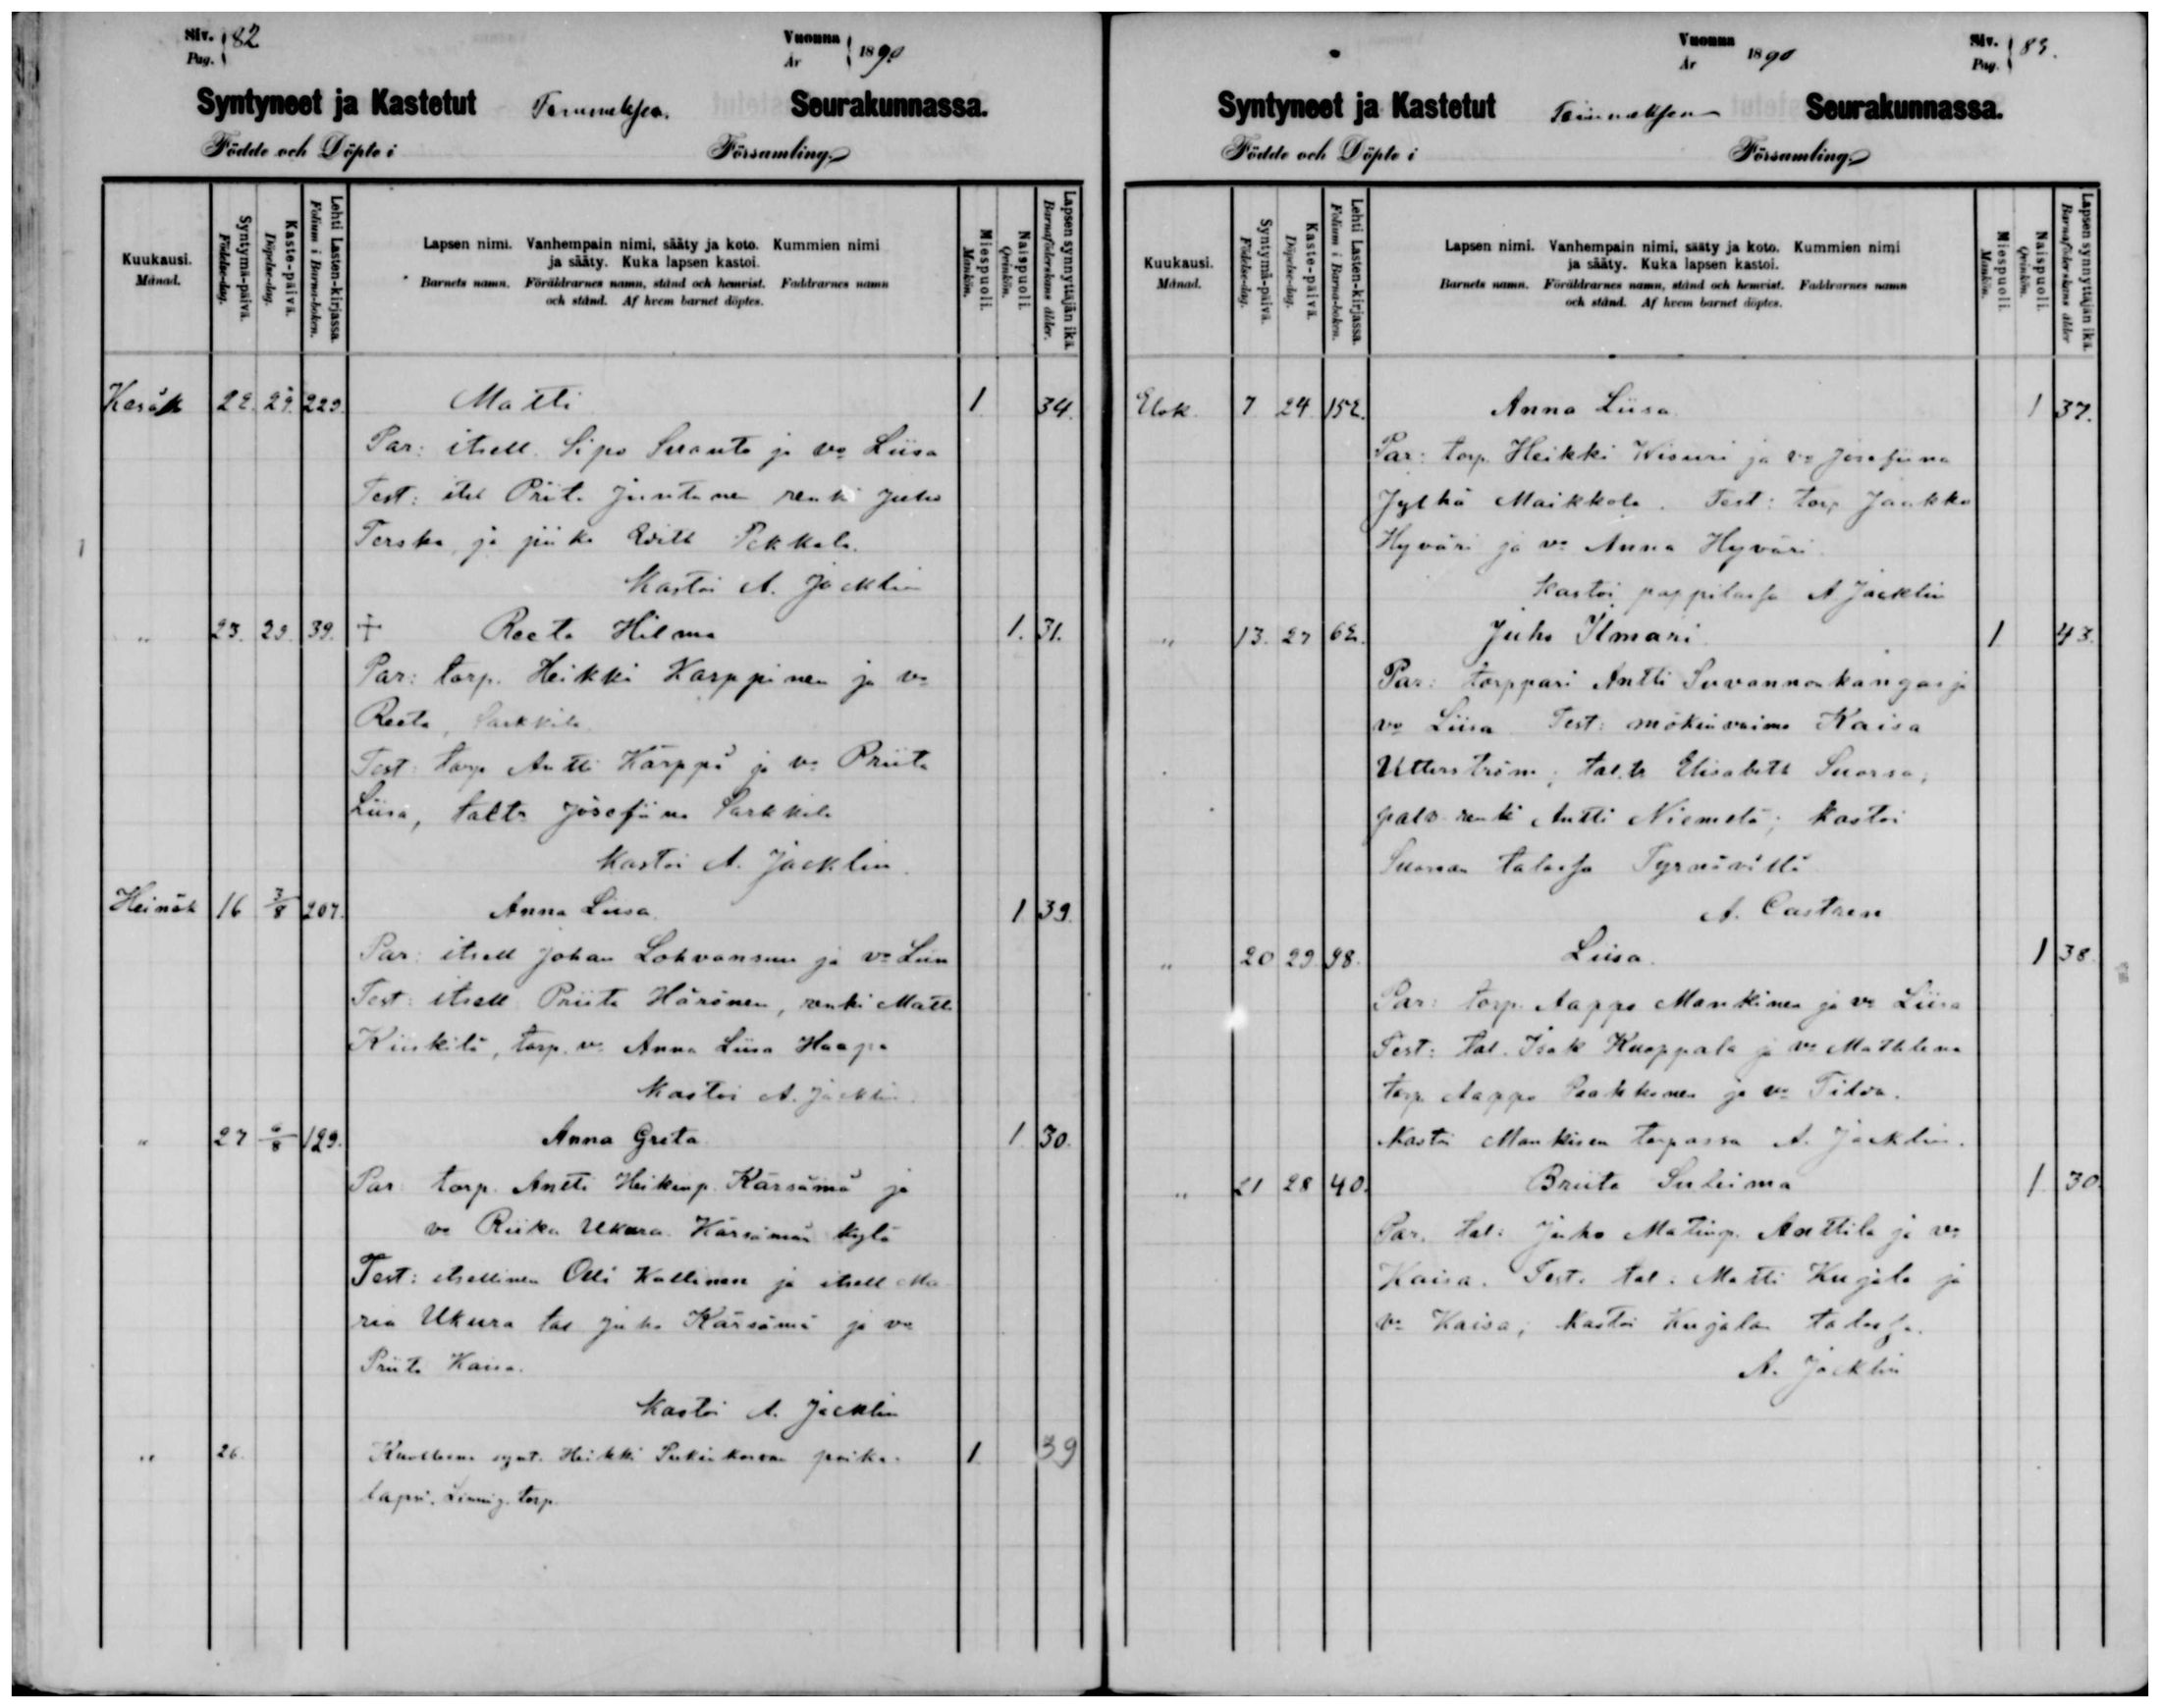 Siv. 82
Pag.
Vuonna 1890
År
Syntyneet ja Kastetut Temmeksen Seurakunnassa.
Födde och Döpte i Församling.
Kuukausi.
Månad.
Syntymä-päivä.
Födelse-dag.
Kaste-päivä.
Döpelse-dag.
Lehti Lasten-kirjassa.
Folium i Barna-boken.
Lapsen nimi. Vanhempain nimi, sääty ja koto. Kummien nimi
ja sääty. Kuka lapsen kastoi.
Barnets namn. Föräldrarnes namn, stånd och hemvist. Faddrarnes namn
och stånd. Af hvem barnet döptes.
Miespuoli.
Mankön.
Naispuoli.
Qvinkön.
Lapsen synnyttäjän ikä.
Barnaföderskans ålder.
Kesäk 22. 29. 229. Matti 1 34.
Par: itsell. Sipo Suanto ja vo Liisa
Test: itsl Priita Juntunen renki Juho
Terska, ja piika Edith Pekkala.
Kastoi A. Jacklin
" 23. 29. 39. + Reeta Hilma 1. 31.
Par: torp. Heikki Karppinen ja vo
Reeta, Sarkkila.
Test: torp Antti Kärppä ja vo Priita
Liisa, taltr Josefiina Sarkkila
Kastoi A. Jacklin.
Heinäk 16 3/8 207. Anna Liisa 1 39.
Par: itsell Johan Lohvansuu ja vo Liisa
Test: itsell Priita Härönen, renki Matti
Kiiskilä, torp. vo Anna Liisa Haapa
Kastoi A. Jacklin.
" 27 6/8 129. Anna Greta 1. 30.
Par: torp. Antti Heikinp. Kärsämä ja
vo Riika Ukura. Kärsämän kylä
Test: itsellinen Olli Kallinen ja itsell Ma
ria Ukura tal Juho Kärsämä ja vo
Priita Kaisa.
Kastoi A. Jacklin
" 26. Kuolleena synt. Heikki poika- 1 39
lapsi. torp.
Vuonna 1890
År
Siv. 83.
Pag.
Syntyneet ja Kastetut Temmeksen Seurakunnassa.
Födde och Döpte i Församling.
Kuukausi.
Månad.
Syntymä-päivä.
Födelse-dag.
Kaste-päivä.
Döpelse-dag.
Lehti Lasten-kirjassa.
Folium i Barna-boken.
Lapsen nimi. Vanhempain nimi, sääty ja koto. Kummien nimi
ja sääty. Kuka lapsen kastoi.
Barnets namn. Föräldrarnes namn, stånd och hemvist. Faddrarnes namn
och stånd. Af hvem barnet döptes.
Miespuoli.
Mankön.
Naispuoli.
Qvinkön.
Lapsen synnyttäjän ikä.
Barnaföderskans ålder
Elok. 7 24. 152. Anna Liisa 1 37.
Par: torp. Heikki Wisuri ja vo Josefiina
Jylhä Maikkola. Test: torp Jaakko
Hyväri ja vo Anna Hyväri.
Kastoi pappilassa A Jacklin
" 13. 27 62. Juho Ilmari 1 43.
Par: torppari Antti Suvannonkangas ja
vo Liisa Test: mökinvaimo Kaisa
Utterström; tal.tr Elisabeth Suorsa;
palv. renki Antti Niemelä; kastoi
Suorsan talossa Tyrnävällä
A. Castren
" 20 29. 98. Liisa. 1 38.
Par: torp. Aappo Mankinen ja vo Liisa
Test: tal. Isak Knappala ja vo Mathlena
torp Aappo Paakkonen ja vo Tilda.
Kastoi Mankisen torpassa A. Jacklin.
" 21 28 40. Briita Suleima 1. 30.
Par. tal: Juho Matinp. Anttila ja vo
Kaisa. Test. tal: Matti Kujala ja
vo Kaisa; kastoi Kujalan talossa.
A. Jacklin